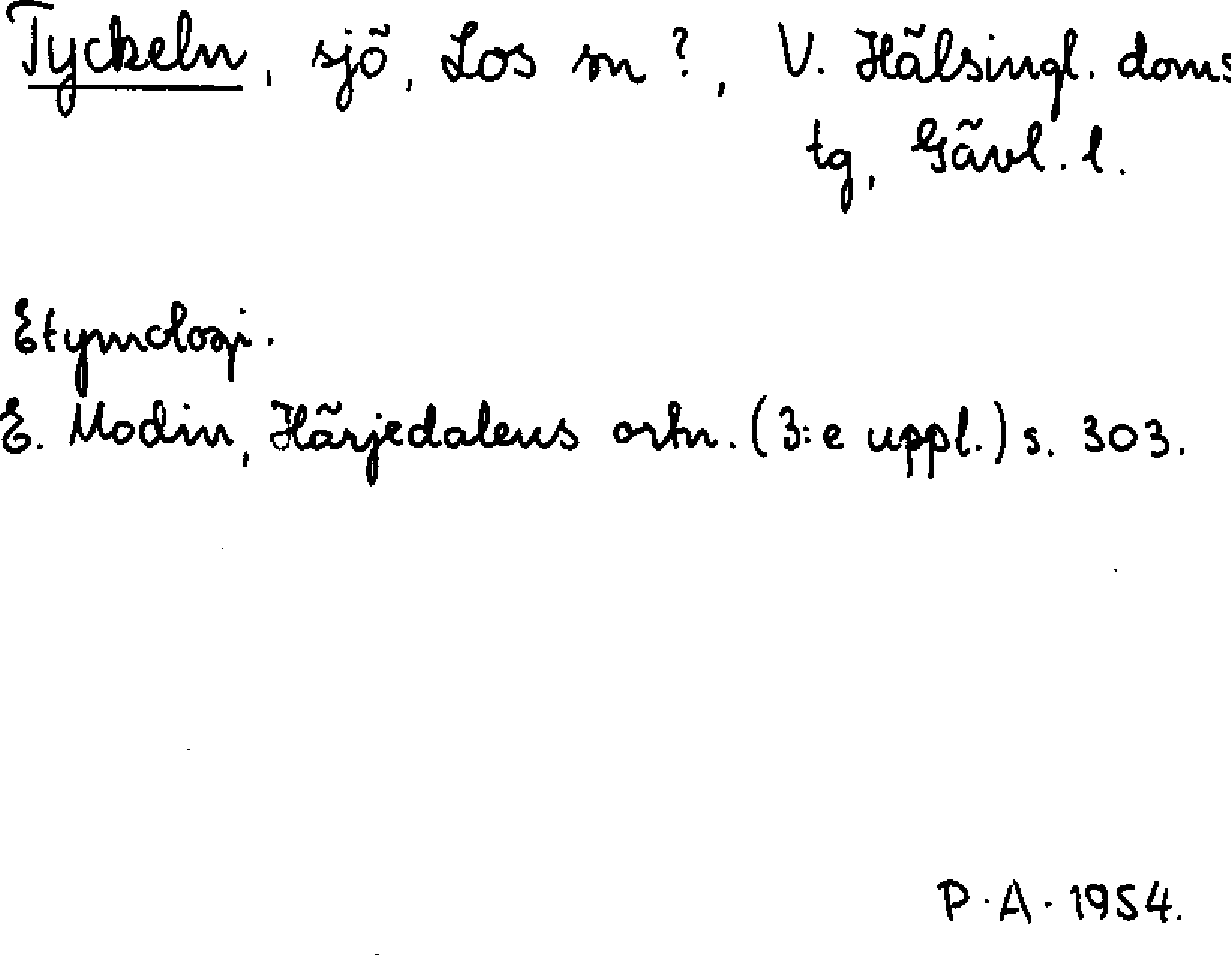 Tyckeln, sjö, Los sn?, V. Hälsingl. doms
tg, Gävl. l.
Etymologi.
E. Modin, Härjedalens ortn. (3:e uppl.) s. 303.
P.A. 1954.